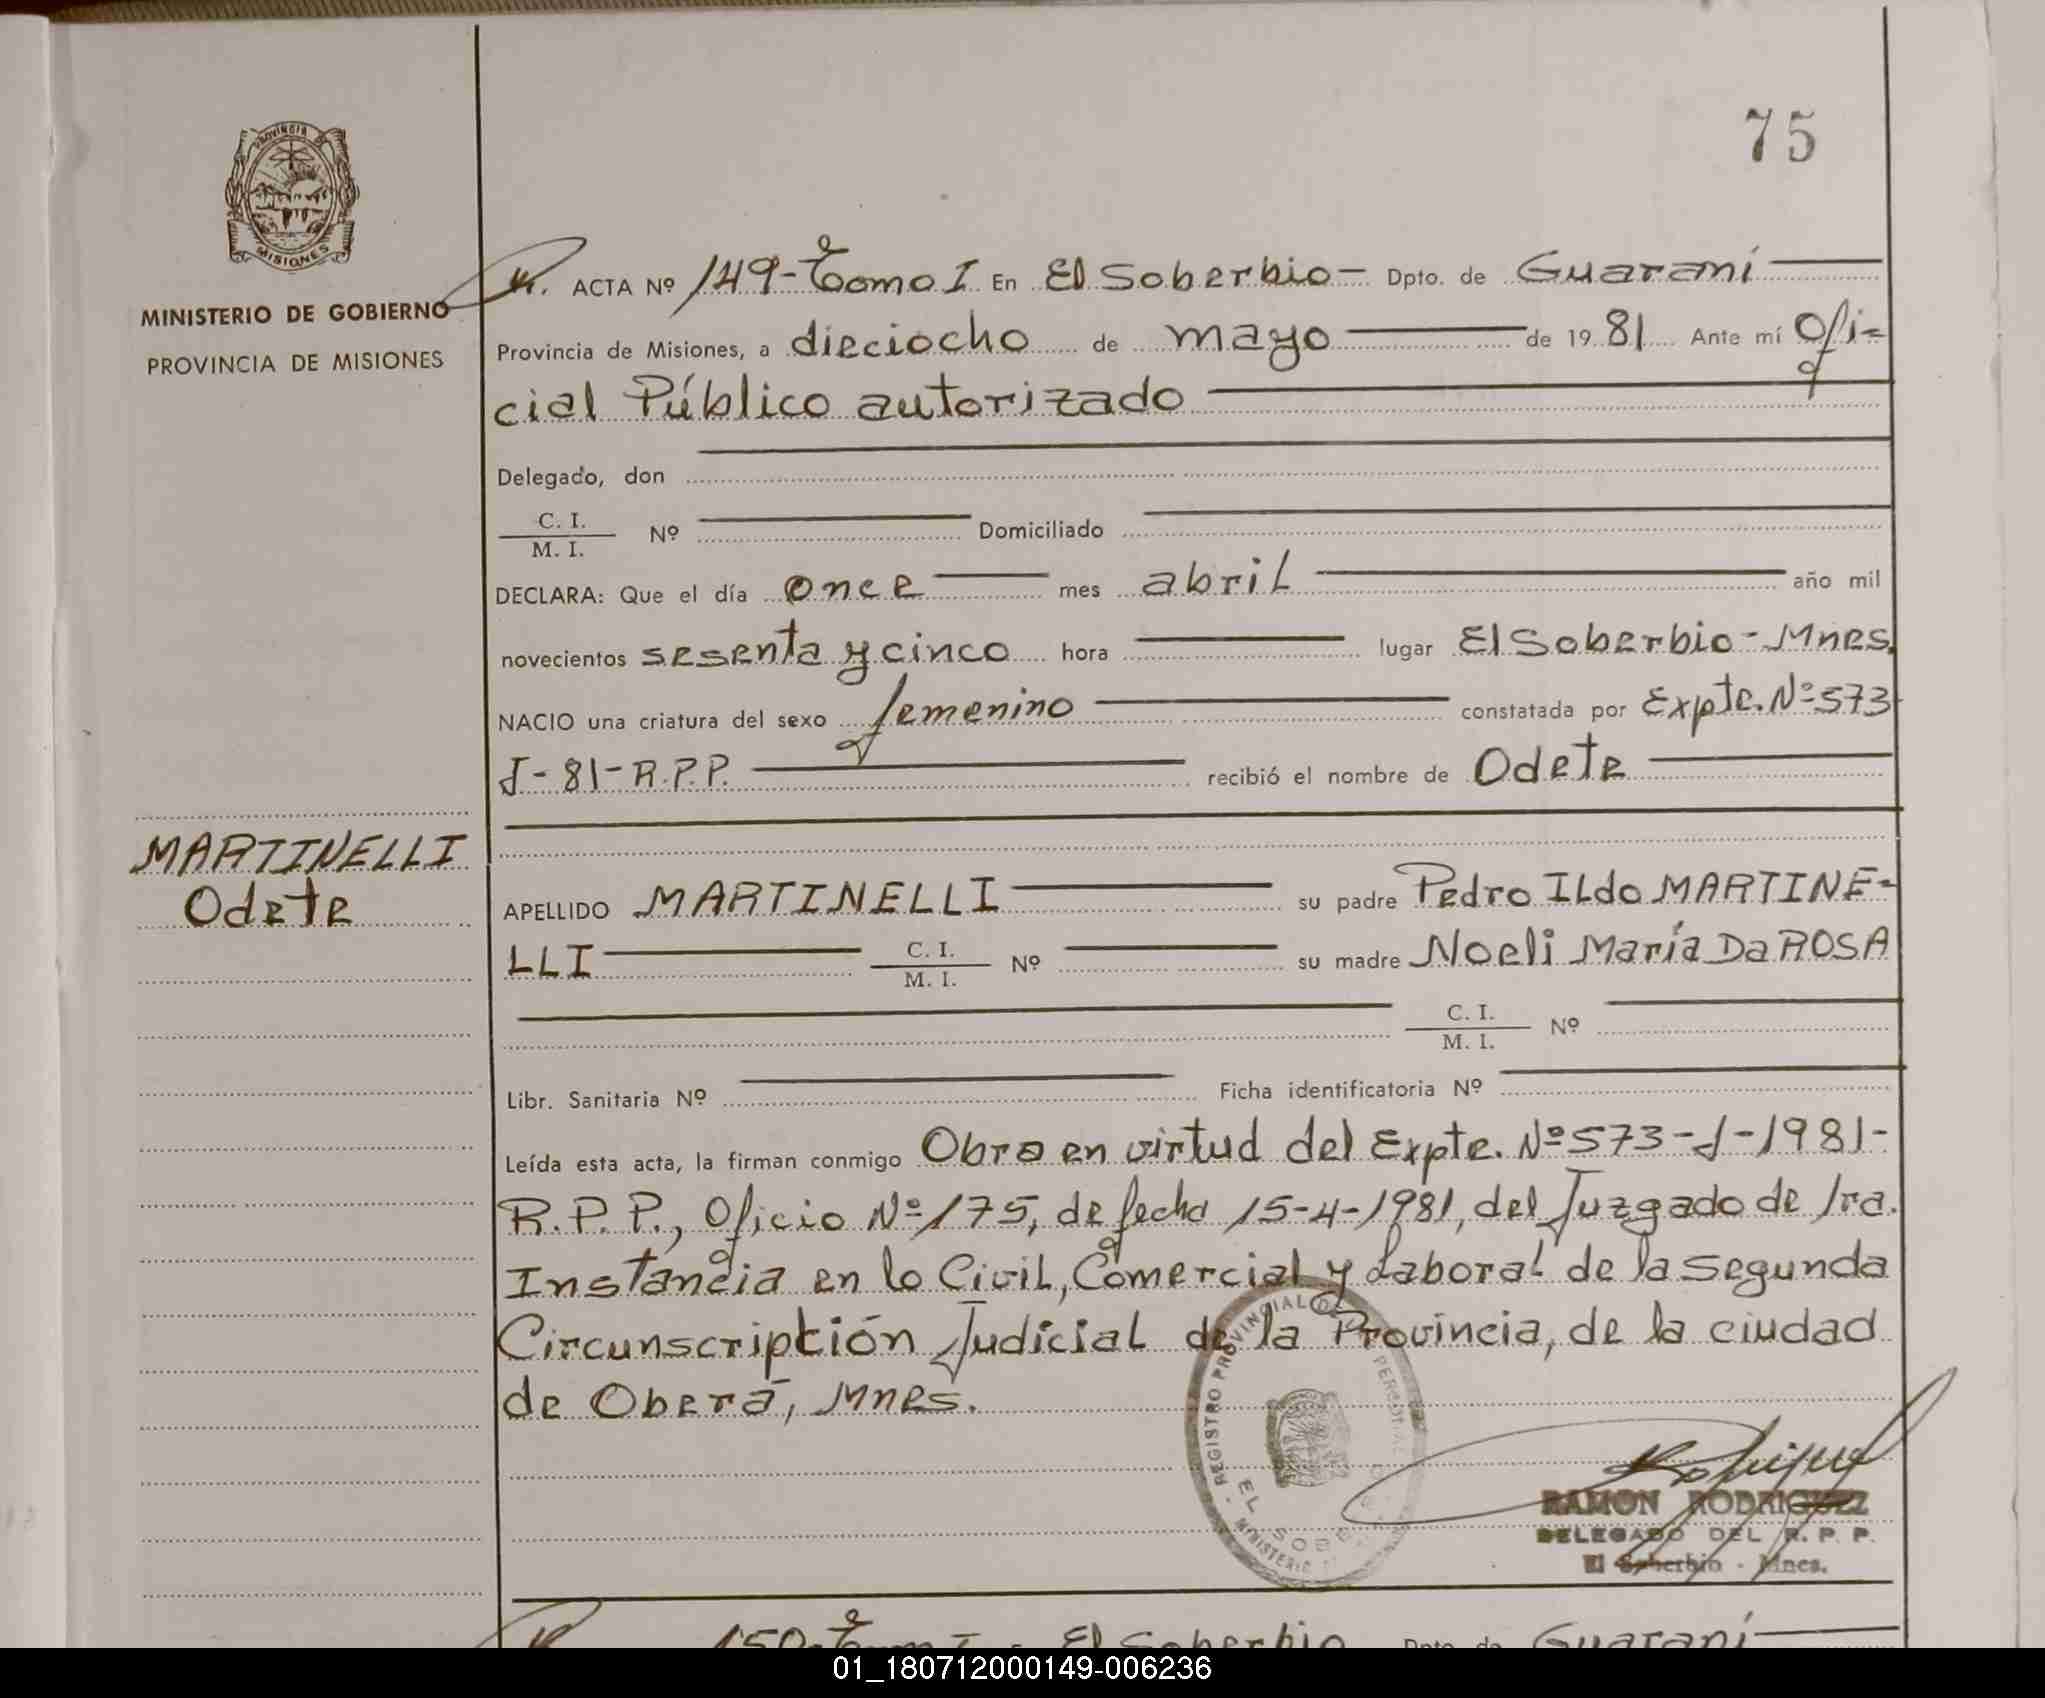 75
PROVINCIA DE
MISIONES
MINISTERIO DE GOBIERNO
PROVINCIA DE MISIONES
ACTA Nº 149-Tomo I En El Soberbio- Dpto. de Guaraní
Provincia de Misiones, a dieciocho de mayo de 1981 Ante mí Ofi=
cial Público autorizado
Delegado, don
C. I.
M. I. Nº Domiciliado
DECLARA: Que el día once mes abril año mil
novecientos sesenta y cinco hora lugar El Soberbio-Mnes.
NACIO una criatura del sexo femenino constatada por Expte. Nº 573
J-81-R.P.P. recibió el nombre de Odete
MARTINELLI
Odete
APELLIDO MARTINELLI su padre Pedro ILdo MARTINE=
LLI C. I.
M. I. Nº su madre Noeli María Da ROSA
C. I.
M. I. Nº
Libr. Sanitaria Nº Ficha identificatoria Nº
Leída esta acta, la firman conmigo Obra en virtud del Expte. Nº 573-J-1981-
R.P.P., Oficio Nº 175, de fecha 15-4-1981, del Juzgado de 1ra.
Instancia en lo Civil, Comercial y Laboral de la Segunda
Circunscripción Judicial de la Provincia, de la ciudad
de Oberá, Mnes.
REGISTRO PROVINCIAL DE
EL SOBE
MINISTERIO
RAMON RODRIGUEZ
DELEGADO DEL R. P. P.
El Soberbio - Mnes.
150-Tomo I En El Soberbio Dpto. de Guaraní
01_180712000149-006236